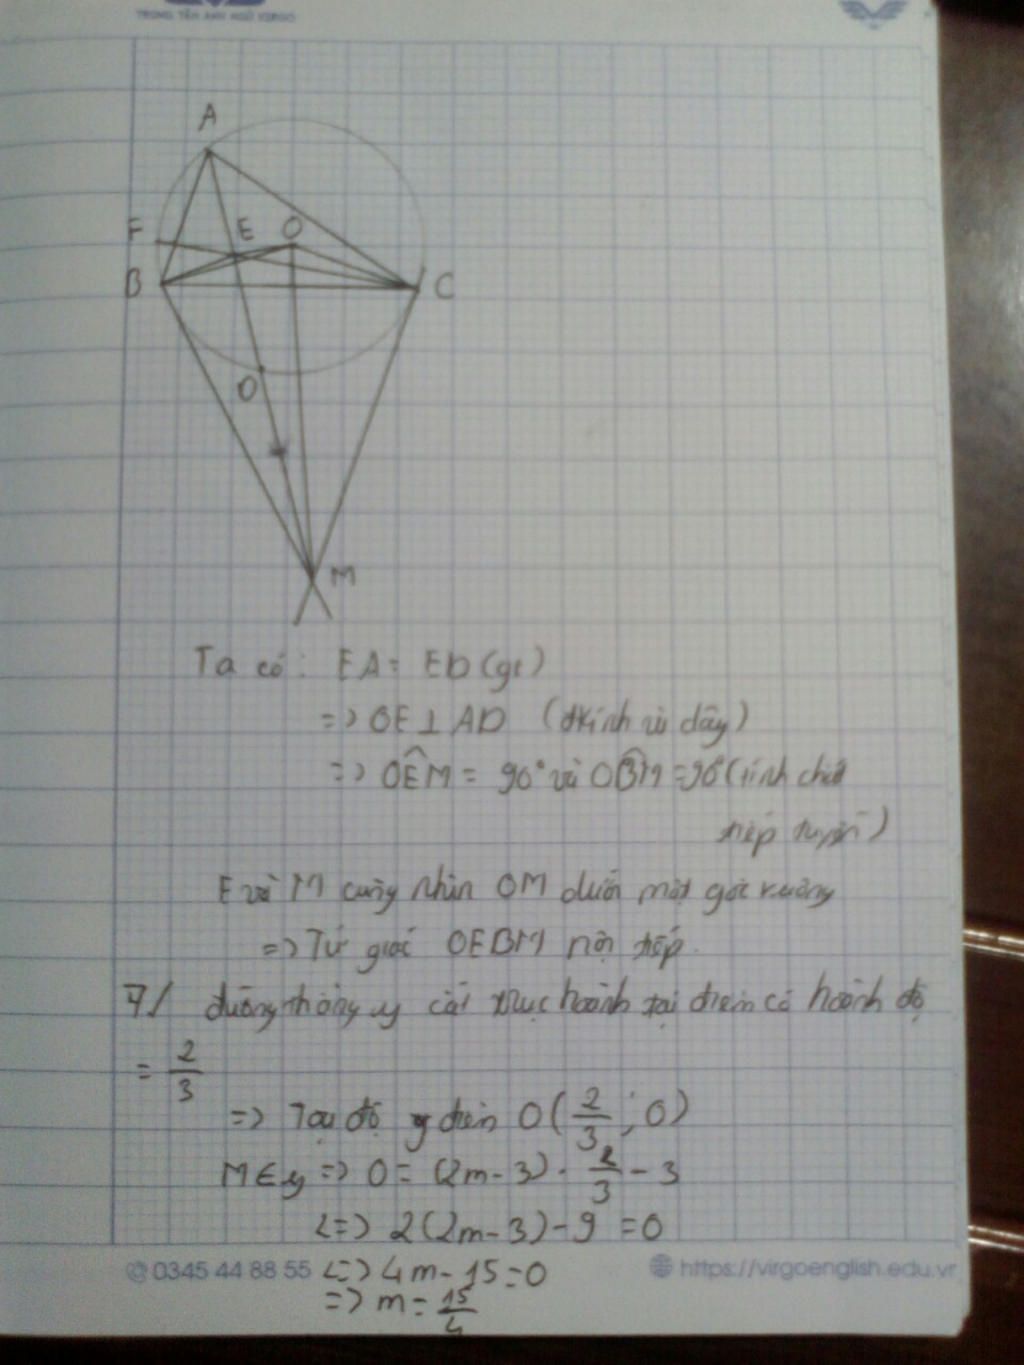 TRUNG TÂM ANH NGỮ VIRGO
A
F E O
B C
D
M
Ta có: EA = ED (gt)
=> OE ⊥ AD (đkính và dây)
=> OÊM = 90° và OB̂M = 90° (tính chất
tiếp tuyến)
E và M cùng nhìn OM dưới một góc vuông
=> Tứ giác OEBM nội tiếp.
7/ đường thẳng y cắt trục hoành tại điểm có hoành độ
= 2/3
=> Toạ độ điểm O(2/3; 0)
M ∈ y => 0 = (2m - 3) . 2/3 - 3
<=> 2(2m - 3) - 9 = 0
<=> 4m - 15 = 0
=> m = 15/4
0345 44 88 55 https://virgoenglish.edu.vn